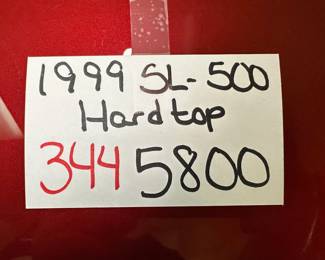 1999 SL-500
Hardtop
344 5800